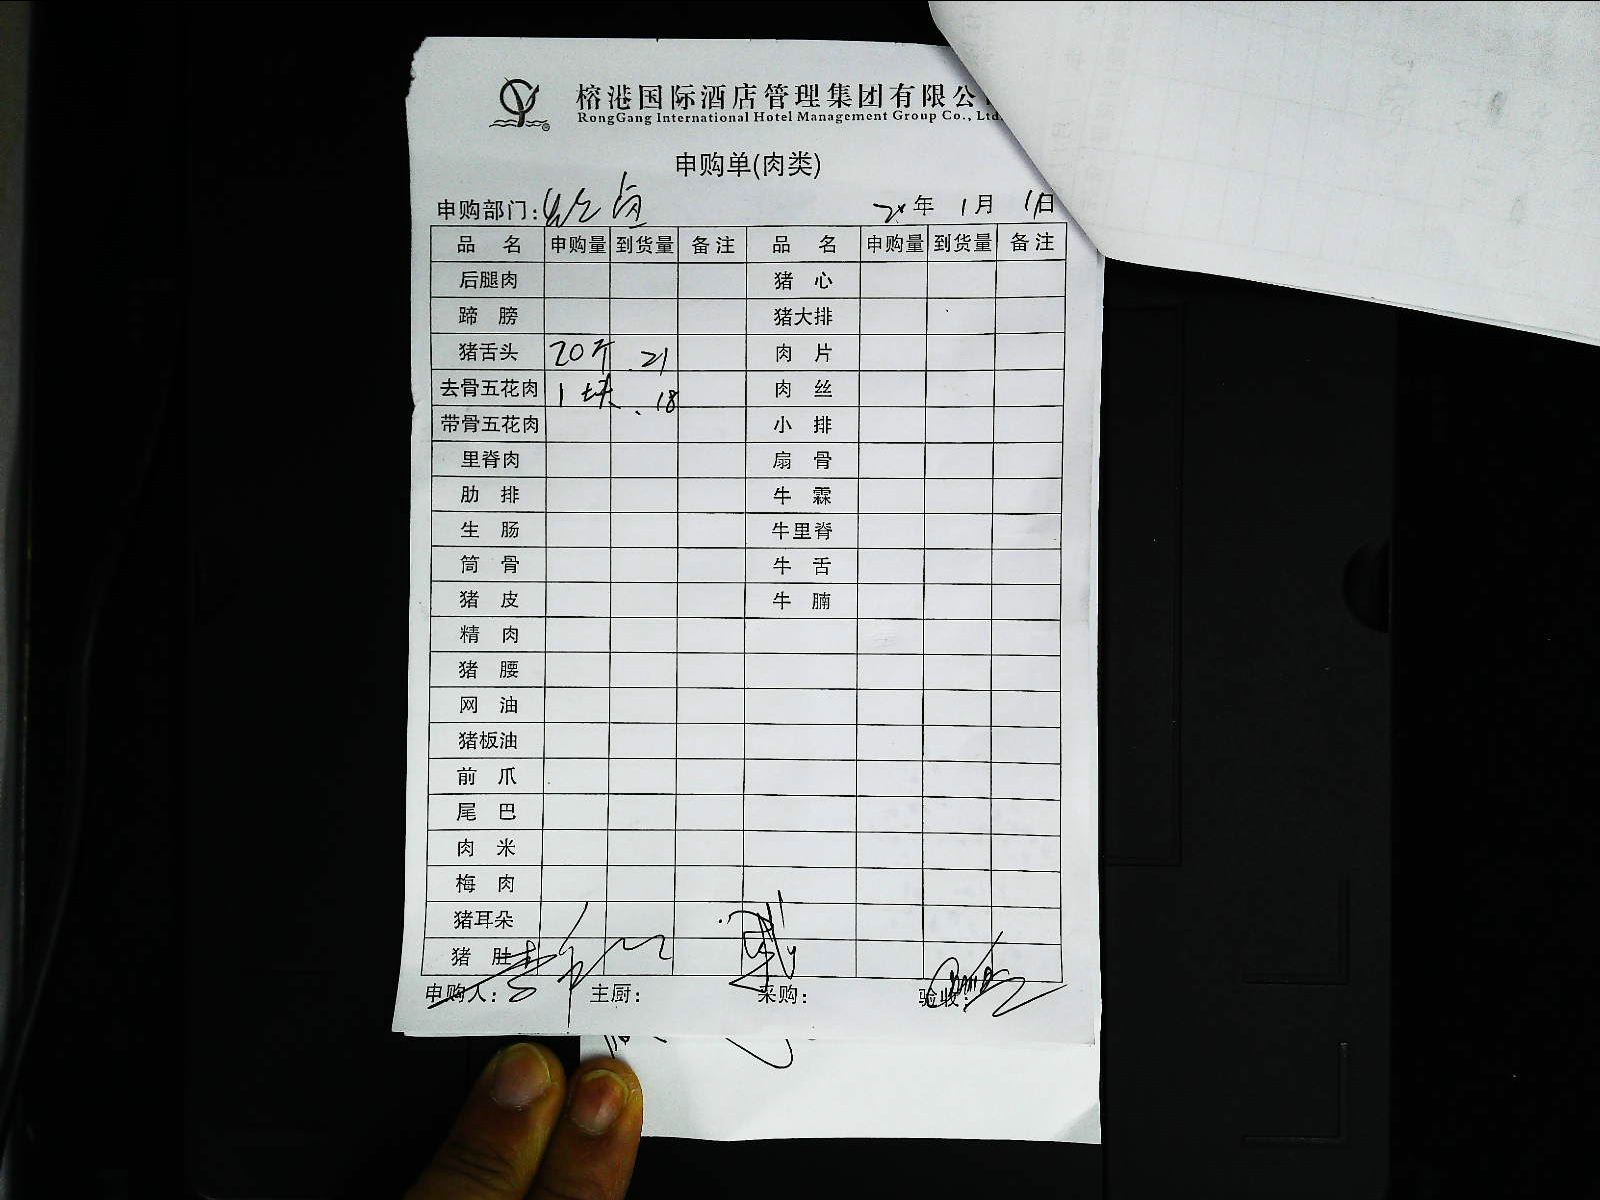 榕港国际酒店管理集团有限公
RongGang International Hotel Management Group Co., Ltd.
申购单(肉类)
申购部门: 年 1月 1日
品 名 申购量 到货量 备注 品 名 申购量 到货量 备注
后腿肉 猪 心
蹄 膀 猪大排
猪舌头 20斤 21 肉 片
去骨五花肉 1块 18 肉 丝
带骨五花肉 小 排
里脊肉 扇 骨
肋 排 牛 霖
生 肠 牛里脊
筒 骨 牛 舌
猪 皮 牛 腩
精 肉
猪 腰
网 油
猪板油
前 爪
尾 巴
肉 米
梅 肉
猪耳朵
猪 肚
申购人: 主厨: 采购: 验收: